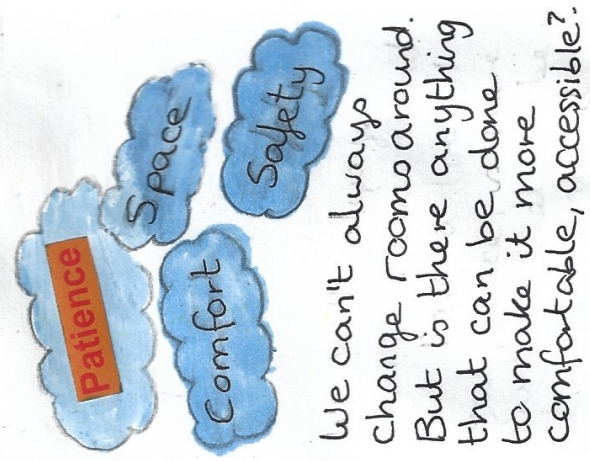 Patience
Space
Comfort
Safety
We can't always
change rooms around.
But is there anything
that can be done
to make it more
comfortable, accessible?.